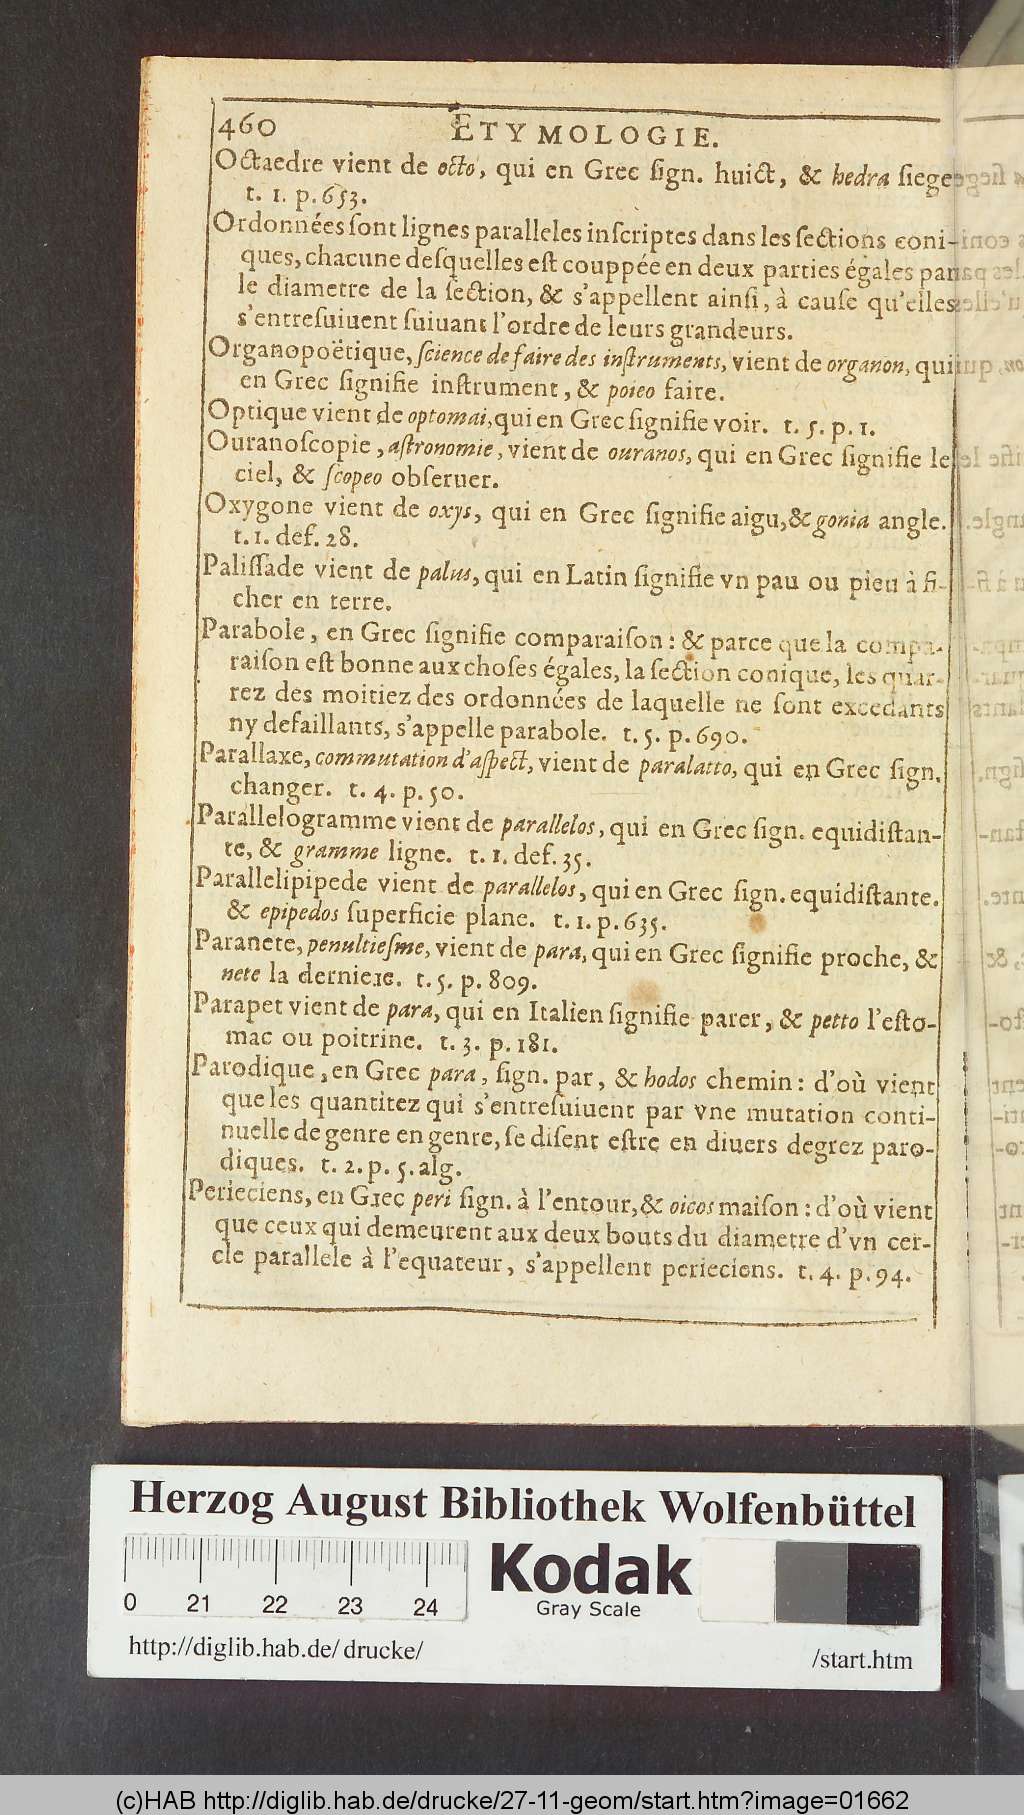 460 ETYMOLOGIE.
Octaedre vient de octo, qui en Grec ſign. huict, & hedra ſiege
t. 1. p. 653.
Ordonnées ſont lignes paralleles inſcriptes dans les ſections coni-
ques, chacune deſquelles eſt couppée en deux parties égales par
le diametre de la ſection, & s'appellent ainſi, à cauſe qu'elles
s'entreſuiuent ſuiuant l'ordre de leurs grandeurs.
Organopoëtique, ſcience de faire des inſtruments, vient de organon, qui
en Grec ſignifie inſtrument, & poieo faire.
Optique vient de optomai, qui en Grec ſignifie voir. t. 5. p. 1.
Ouranoſcopie, aſtronomie, vient de ouranos, qui en Grec ſignifie le
ciel, & ſcopeo obſeruer.
Oxygone vient de oxys, qui en Grec ſignifie aigu, & gonia angle.
t. 1. def. 28.
Paliſſade vient de palus, qui en Latin ſignifie vn pau ou pieu à fi-
cher en terre.
Parabole, en Grec ſignifie comparaiſon: & parce que la compa-
raiſon eſt bonne aux choſes égales, la ſection conique, les quar-
rez des moitiez des ordonnées de laquelle ne ſont excedants
ny defaillants, s'appelle parabole. t. 5. p. 690.
Parallaxe, commutation d'aſpect, vient de paralatto, qui en Grec ſign.
changer. t. 4. p. 50.
Parallelogramme vient de parallelos, qui en Grec ſign. equidiſtan-
te, & gramme ligne. t. 1. def. 35.
Parallelipipede vient de parallelos, qui en Grec ſign. equidiſtante.
& epipedos ſuperficie plane. t. 1. p. 635.
Paranete, penultieſme, vient de para, qui en Grec ſignifie proche, &
nete la derniere. t. 5. p. 809.
Parapet vient de para, qui en Italien ſignifie parer, & petto l'eſto-
mac ou poitrine. t. 3. p. 181.
Parodique, en Grec para, ſign. par, & hodos chemin: d'où vient
que les quantitez qui s'entreſuiuent par vne mutation conti-
nuelle de genre en genre, ſe diſent eſtre en diuers degrez paro-
diques. t. 2. p. 5. alg.
Perieciens, en Grec peri ſign. à l'entour, & oicos maiſon: d'où vient
que ceux qui demeurent aux deux bouts du diametre d'vn cer-
cle parallele à l'equateur, s'appellent perieciens. t. 4. p. 94.
Herzog August Bibliothek Wolfenbüttel
0 21 22 23 24
Kodak
Gray Scale
http://diglib.hab.de/ drucke/ /start.htm
(c)HAB http://diglib.hab.de/drucke/27-11-geom/start.htm?image=01662